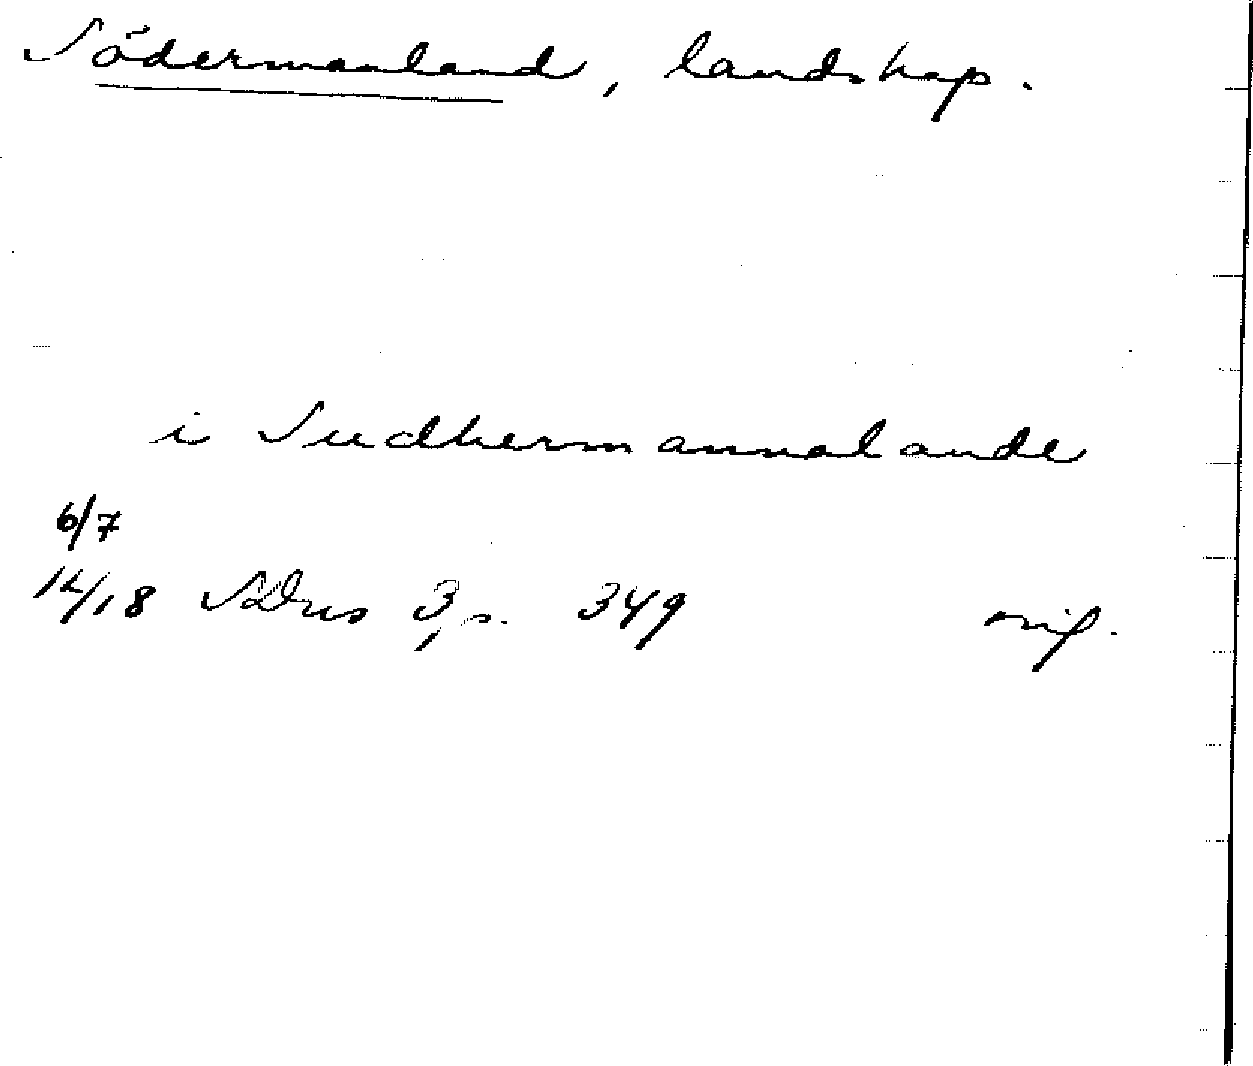 Södermanland, landskap.
i Sudhermannalande
6/7
14/18 SDns 3, s. 349 orig.